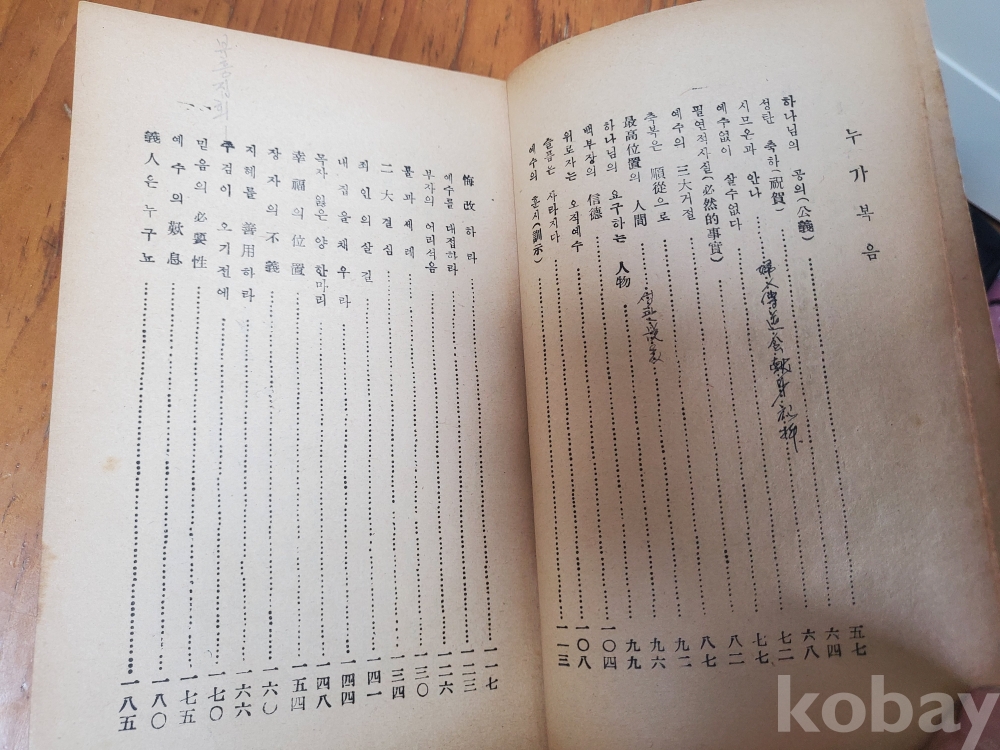 누가복음
하나님의 공의(公義) …… 五七
성탄 축하(祝賀) …… 六四
시므온과 안나 …… 六八
예수없이 살수없다 …… 七二
필연적사실(必然的事實) …… 七七
예수의 三大거절 …… 八二
축복은 順從으로 …… 八七
最高位置의 人間 …… 九二
하나님의 요구하는 人物 …… 九六
백부장의 信德 …… 九九
위로자는 오직예수 …… 一〇四
슬픔은 사라지다 …… 一〇八
예수의 훈시(訓示) …… 一一三
悔改하라 …… 一一七
예수를 대접하라 …… 一二三
부자의 어리석음 …… 一二六
불과세례 …… 一三〇
二大결심 …… 一三四
죄인의살길 …… 一四一
내집을채우라 …… 一四四
목자 잃은양 한마리 …… 一四八
幸福의 位置 …… 一五四
장자의 不義 …… 一六〇
지혜를 善用하라 …… 一六六
주검이 오기전에 …… 一七〇
믿음의 必要性 …… 一七五
예수의 歎息 …… 一八〇
義人은 누구뇨 …… 一八五
kobay